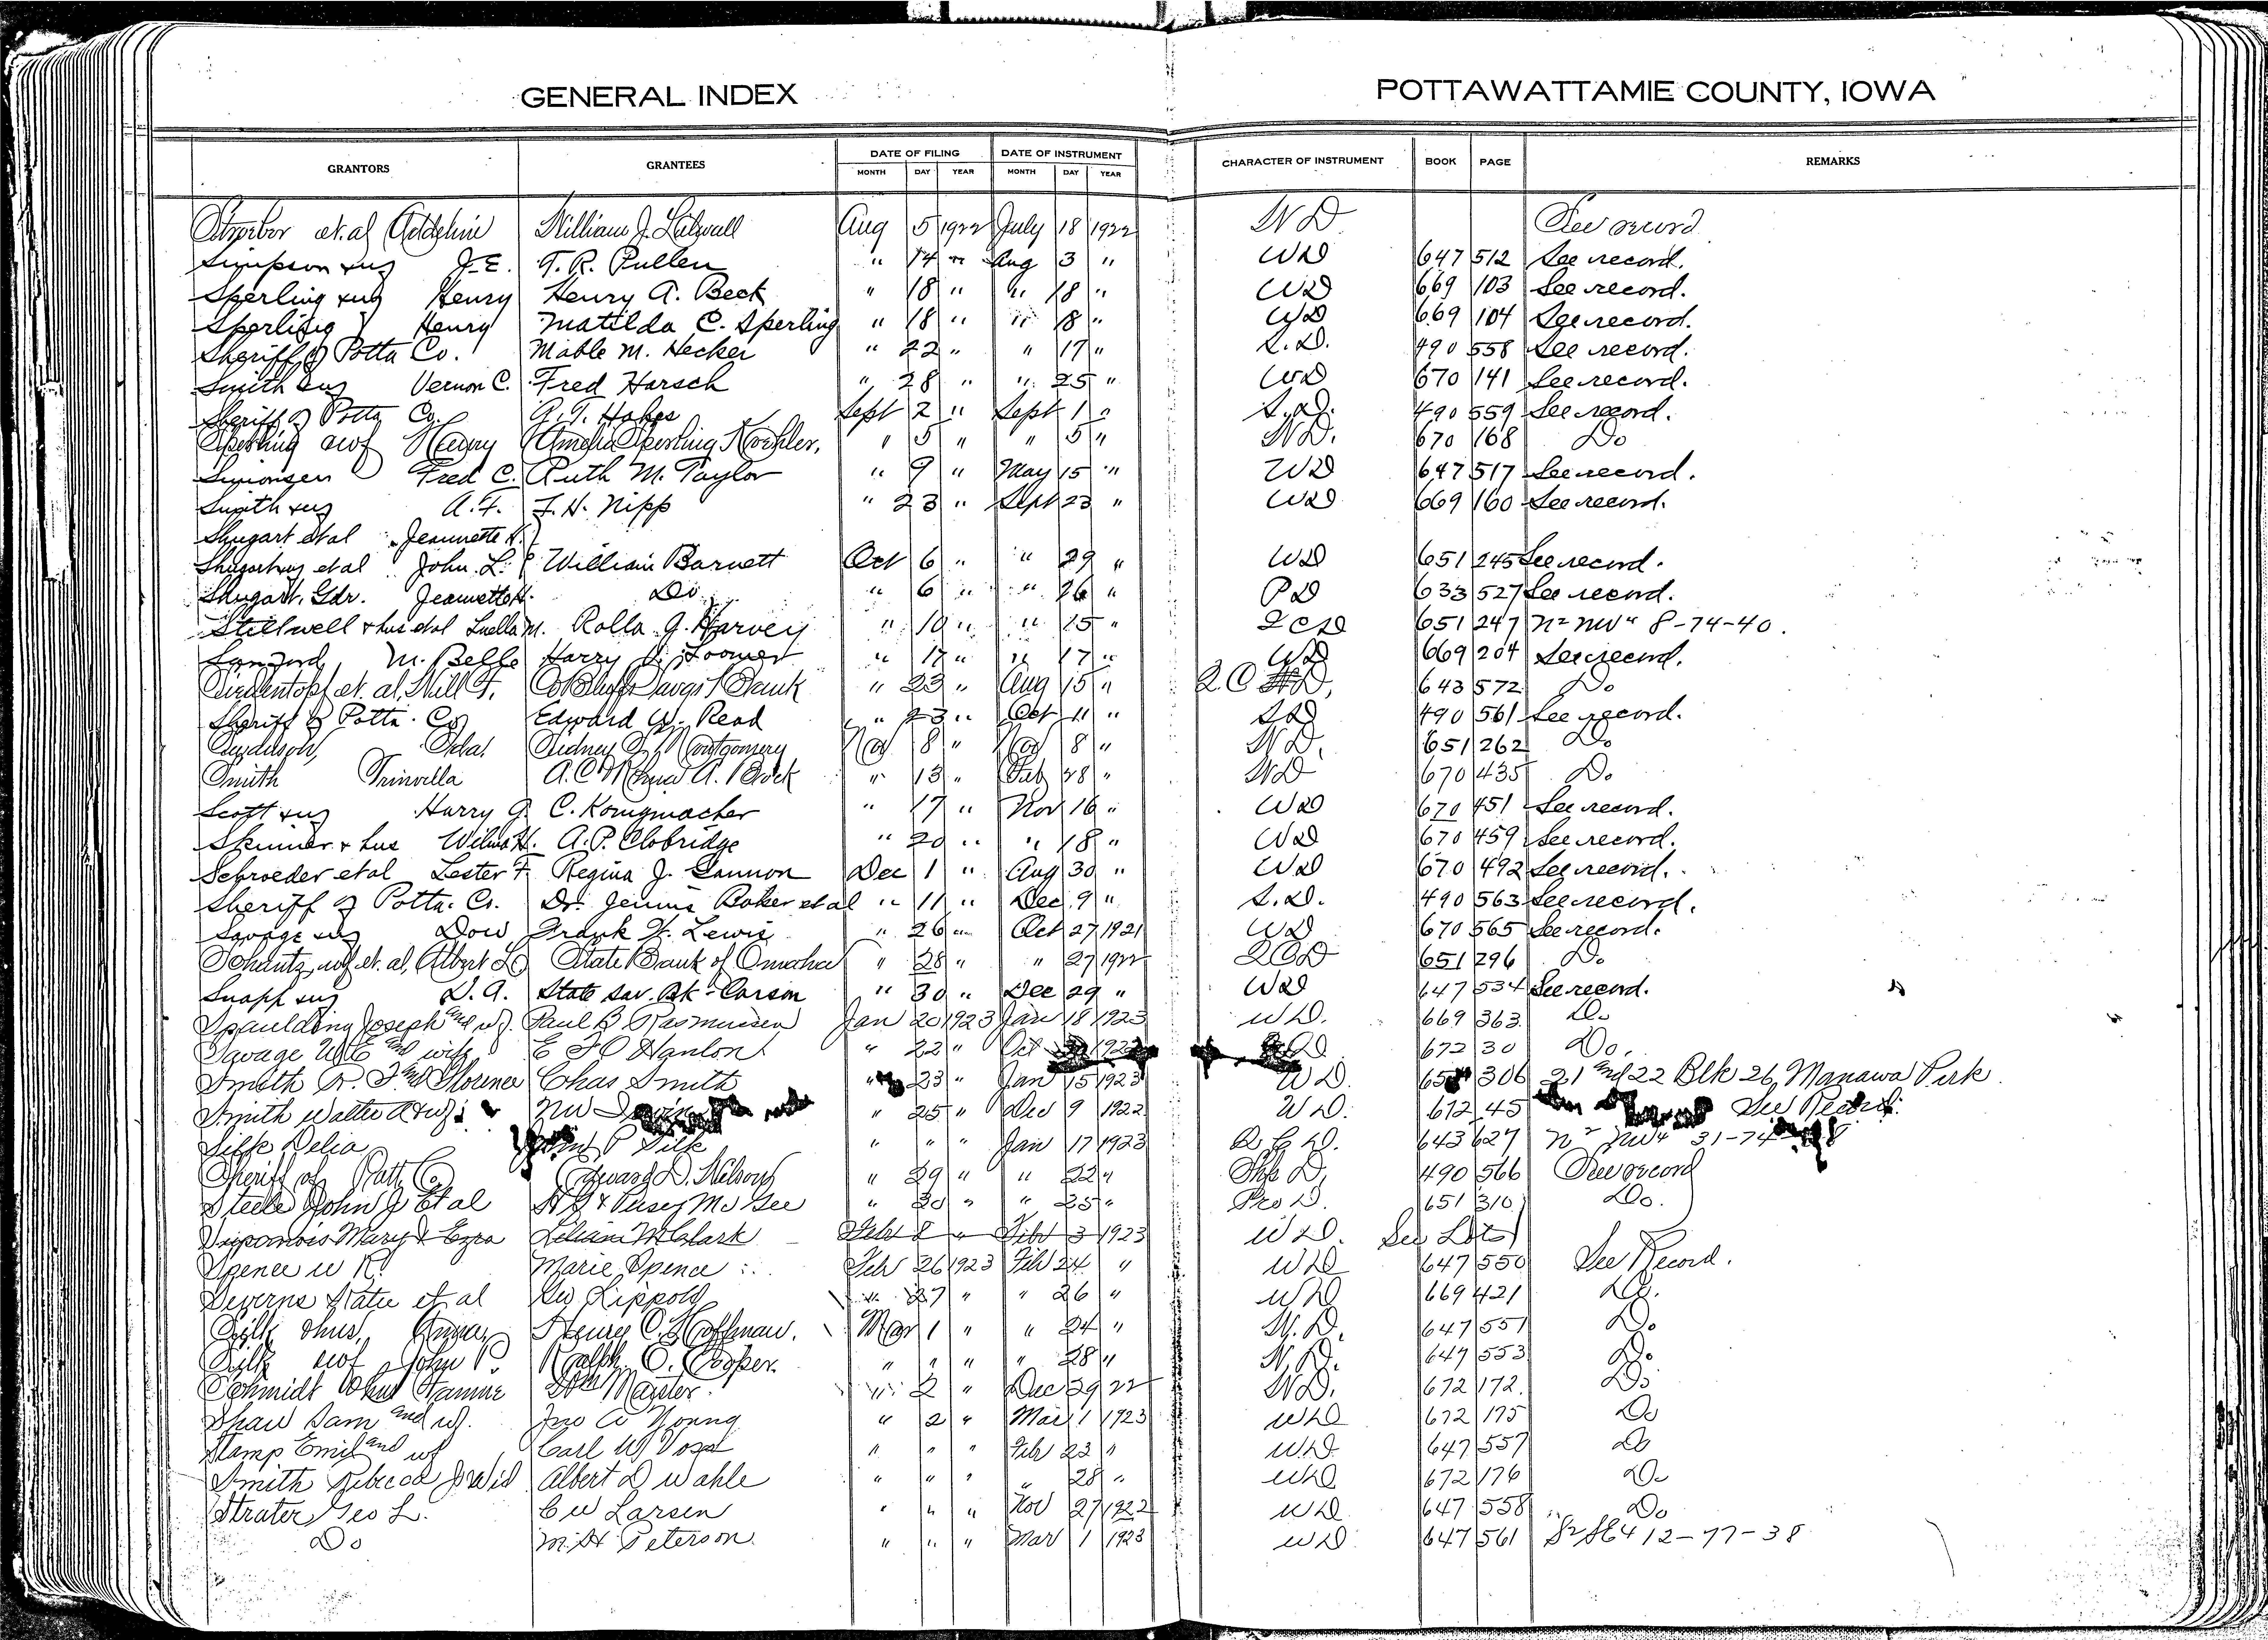 GENERAL INDEX
POTTAWATTAMIE COUNTY, IOWA
GRANTORS GRANTEES DATE OF FILING DATE OF INSTRUMENT CHARACTER OF INSTRUMENT BOOK PAGE REMARKS
MONTH DAY YEAR MONTH DAY YEAR
et al William J. Aug 5 1922 July 18 1922 W D See record
Simpson J.E. T. R. Pullen " 14 " Aug 3 " WD 647 512 See record.
Sperling Henry Henry A. Beck " 18 " " 18 " WD 669 103 See record.
Sperling Henry Matilda C. Sperling " 18 " " 18 " WD 669 104 See record.
Sheriff of Potta Co. Mable M. Hecker " 22 " " 17 " S.D. 490 558 See record.
Smith Vernon C. Fred Harsch " 28 " " 25 " WD 670 141 See record.
Sheriff of Potta Co. Sept 2 " Sept 1 " S.D. 490 559 See record.
Sperling Amelia Sperling Koehler, " 5 " " 5 " W D. 670 168 Do
Simonsen Fred C. Ruth M. Taylor " 9 " May 15 " WD 647 517 See record.
Smith A.F. F. H. Nipp " 23 " Sept 23 " WD 669 160 See record.
Shugart et al Jeannette H.
Shugart et al John L. William Barnett Oct 6 " " 29 " WD 651 245 See record.
Shugart, Gdr. Jeanette H. Do " 6 " " 26 " PD 633 527 See record.
Stillwell & hus et al Luella M. Rolla J. Harvey " 10 " " 15 " QCD 651 247 N2 NW4 8-74-40.
M. Belle Harry " 17 " " 17 " WD 669 204 See record.
et al, Co Bluffs Savgs Bank " 23 " Aug 15 " Q C D, 643 572 Do
Sheriff of Potta. Co Edward W. Read " 23 " Oct 11 " SD 490 561 See record.
Sidney Montgomery Nov 8 " Nov 8 " W D. 651 262 Do
Smith " 13 " 28 " WD 670 435 Do
Scott Harry G. C. Konigmacher " 17 " Nov 16 " WD 670 451 See record.
Skinner & hus Wilma H. A. P. Clobridge " 20 " " 18 " WD 670 459 See record.
Schroeder et al Lester F. Regina J. Gannon Dec 1 " Aug 30 " WD 670 492 See record.
Sheriff of Potta. Co. Dr. Jennie Baker et al " 11 " Dec. 9 " S.D. 490 563 See record.
Savage Dow Frank H. Lewis " 26 " Oct 27 1921 WD 670 565 See record.
Schantz et al, Albert State Bank of Omaha " 28 " " 27 1922 QCD 651 296 Do
Snapp D.A. State Sav. Bk - Carson " 30 " Dec 29 " WD 647 534 See record.
Spaulding Joseph and wf. Paul B Rasmussen Jan 20 1923 Jan 18 1923 WD. 669 363 Do
Savage and wife E F O Hanlon " 22 " Oct 672 30 Do.
Smith R. and Florence Chas Smith " 23 " Jan 15 1923 WD. 306 21 and 22 Blk 26 Manawa Park
Smith Walter A & wf. " 25 " Dec 9 1922 WD. 672 45 See Record.
Silk Delia P Silk " " " Jan 17 1923 Q C D. 643 627 N2 NW4 31-74
Sheriff of Pott Co. Edward D. Nelson " 29 " " 22 " Shfs D, 490 566 See record
Steele John J Et al & Pusey McGee " 30 " " 25 " Pro D. 651 310 Do.
Mary & Ezra Lilian M Clark Feb 8 " Feb 3 1923 WD. See Lots
Spence W R. Marie Spence Feb 26 1923 Feb 24 " WD 647 550 See Record.
Katie et al Geo Lippold " 27 " " 26 " WD 669 421 Do.
Silk & hus, Anna, Henry C. Hoffman. Mar 1 " " 24 " W.D. 647 551 Do
Silk John P. Ralph O. Cooper. " " " " 28 " W.D. 647 553 Do
Schmidt & hus " 2 " Dec 29 22 W D. 672 172. Do
Shaw Sam and wf. Jno A Young " 2 " Mar 1 1923 WD 672 175 Do
Stamp Emil and wf Carl W Voss " " " Feb 23 " WD. 647 557 Do
Smith Rebecca J Wid Albert D Wahle " " " " 28 " WD 672 176 Do
Strater Geo L. C W Larsen " " " Nov 27 1922 WD 647 558 Do
Do M. H Peterson. " " " Mar 1 1923 WD. 647 561 S2 SE4 12-77-38